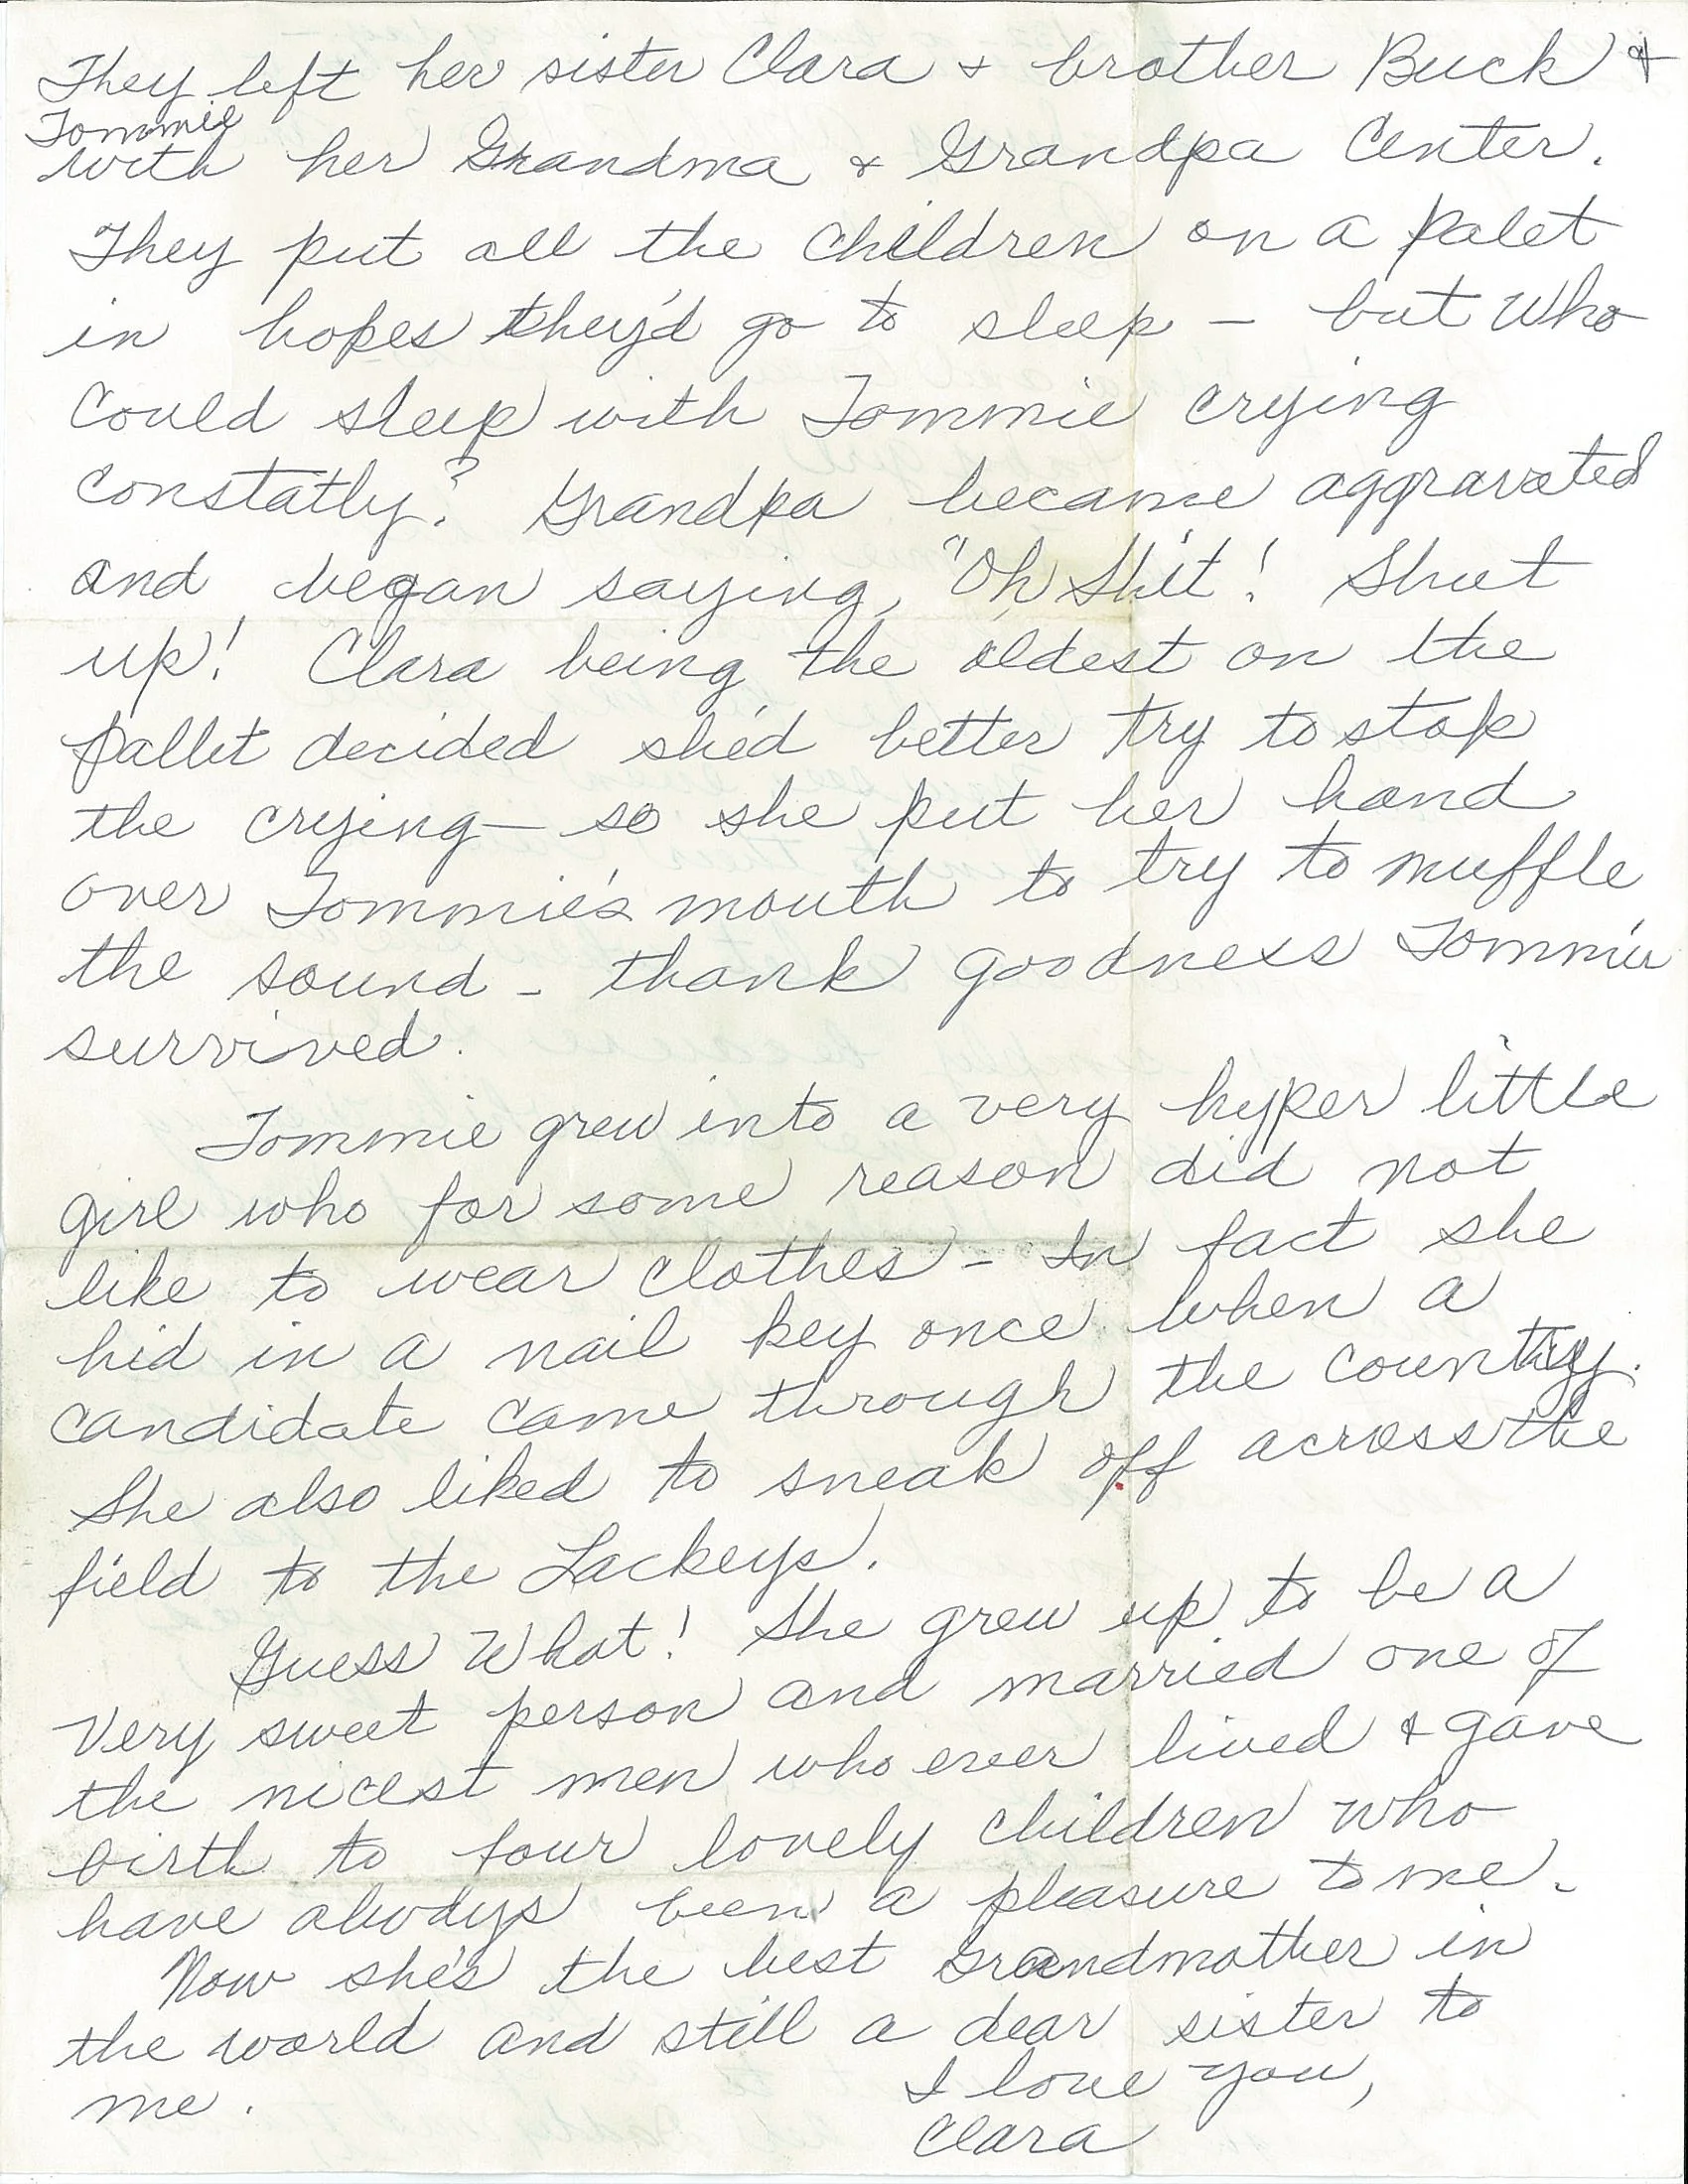 They left her sister Clara + brother Buck +
Tommie
with her Grandma & Grandpa Center.
They put all the children on a palet
in hopes they'd go to sleep — but who
could sleep with Tommie crying
constatly? Grandpa became aggravated
and began saying, "Oh Shit! Shut
up! Clara being the oldest on the
pallet decided she'd better try to stop
the crying — so she put her hand
over Tommie's mouth to try to muffle
the sound - thank goodness Tommie
survived.
Tommie grew into a very hyper little
girl who for some reason did not
like to wear clothes - In fact she
hid in a nail key once when a
candidate came through the country.
She also liked to sneak off across the
field to the Lackeys.
Guess What! She grew up to be a
very sweet person and married one of
the nicest men who ever lived & gave
birth to four lovely children who
have always been a pleasure to me.
Now she's the best Grandmother in
the world and still a dear sister to
me.
I love you,
Clara